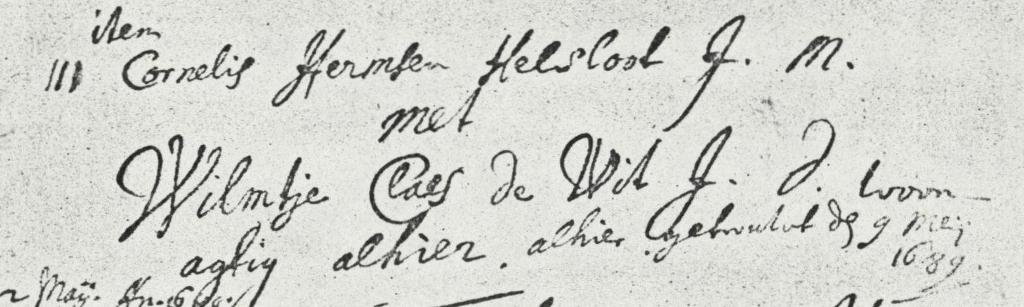 item
III Cornelis Hermsen Helsloot J. M.
met
Wilmtje Claes de Wit J. D. woon-
agtig alhier. alhier getrouwt de 9 Meij
1689.
Maij. An. 16